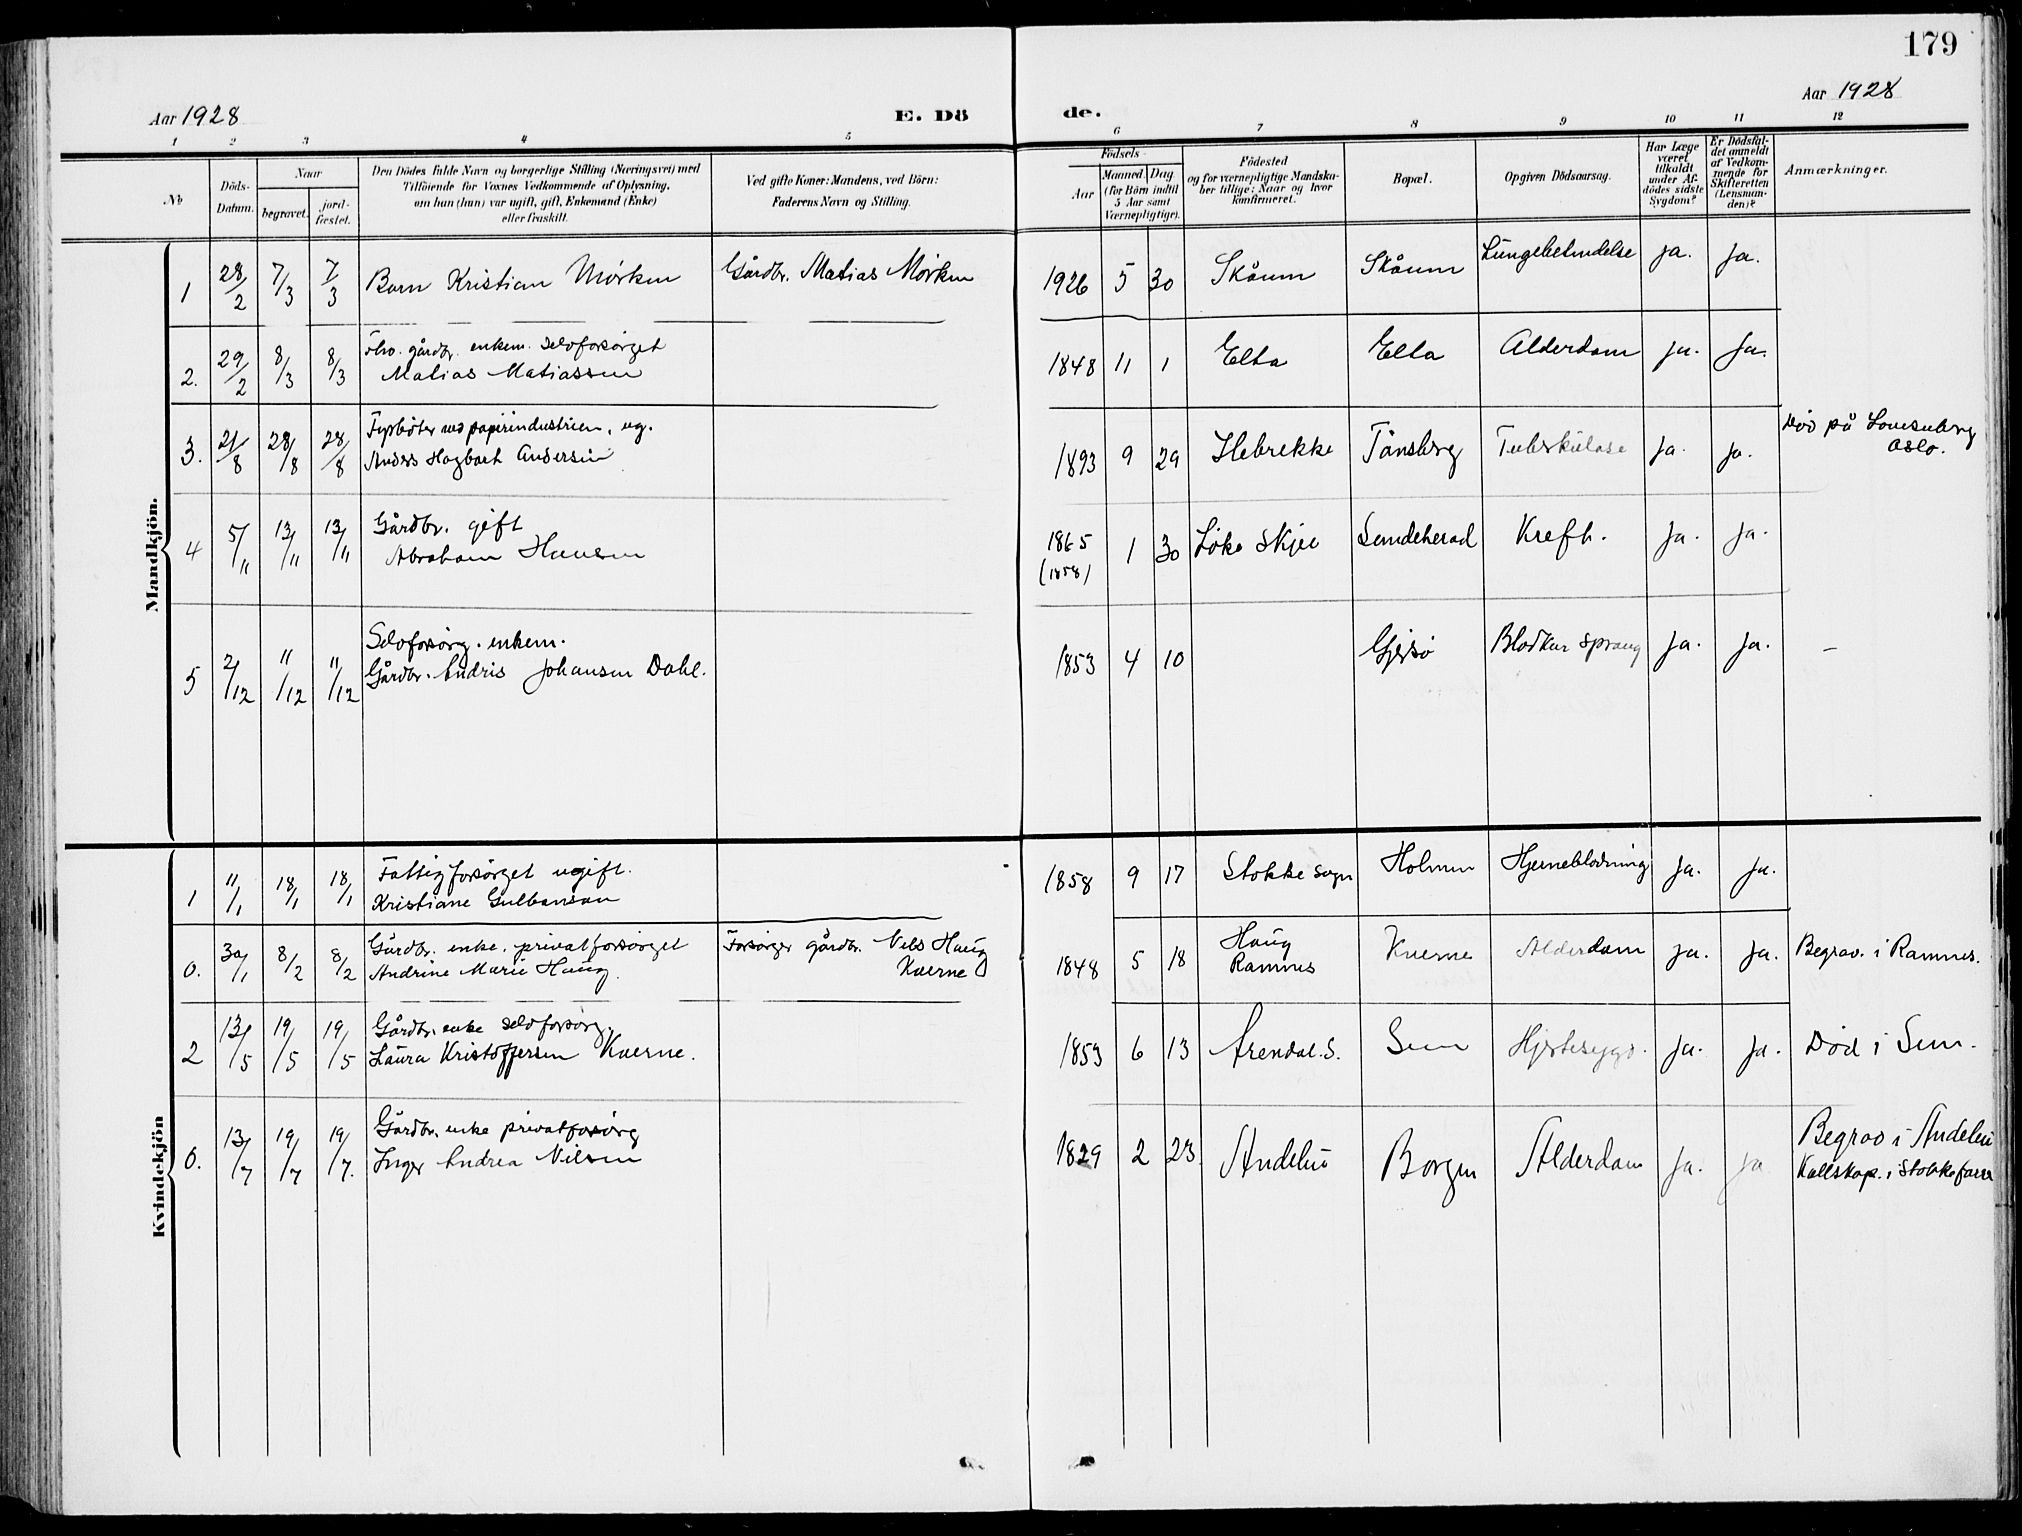 179
Aar 1928 E. Dö de. Aar 1928
1 2 3 4 5 6 7 8 9 10 11 12
No
Döds-Datum.
Naar
begravet. jordfæstet.
Den Dödes fulde Navn og borgerlige Stilling (Næringsvei) med
Tilföiende for Voxnes Vedkommende af Oplysning,
om han (hun) var ugift, gift, Enkemand (Enke)
eller fraskilt.
Ved gifte Koner: Mandens, ved Börn:
Faderens Navn og Stilling.
Födsels-
Aar
Maaned. Dag
(for Börn indtil
5 Aar samt
Værnepligtige).
Födested
og for værnepligtige Mandskaber tillige: Naar og hvor
konfirmeret.
Bopæl.
Opgiven Dödsaarsag.
Har Læge
været
tilkaldt
under Afdödes sidste
Sygdom?
Er Dödsfaldet anmeldt
af Vedkommende for
Skifteretten
(Lensmanden)?
Anmærkninger.
Mandkjön.
1 28/2 7/3 7/3 Barn Kristian Mørken Gårdbr. Matias Mørken 1926 5 30 Skåum Skåum Lungebetendelse ja. ja.
2. 29/2 8/3 8/3 gårdbr. enkem. selvforsørget
Matias Matiassen 1848 11 1 Elta Elta Alderdom ja. ja.
3. 21/8 28/8 28/8 Fyrbøter ved papirindustrien, ug.
Anders Hagbart Andersen 1893 9 29 Ilebrekke Tønsberg Tuberkulose ja. ja. Død på
Oslo.
4 5/11 13/11 13/11 Gårdbr. gift
Abraham Hansen 1865
(1858) 1 30 Løke Skjee Sendeherad Kreft. ja. ja.
5 2/12 11/12 11/12 Selvforsørg. enkem.
Gårdbr. Andris Johansen Dahl. 1853 4 10 Gjersø Blodkar sprang ja. ja. –
Kvindekjön
1 11/1 18/1 18/1 Fattigforsørget ugift.
Kristiane Gulbransen 1858 9 17 Stokke sogn Holmen Hjerneblødning ja. ja.
0. 30/1 8/2 8/2 Gårdbr. enke. privatforsørget
Andrine Marie Haug. Forsørger gårdbr. Nils Haug
Kverne 1848 5 18 Haug
Ramnes Kverne Alderdom ja. ja. Begrav. i Ramnes.
2 13/5 19/5 19/5 Gårdbr. enke selvforsørg.
Laura Kristoffersen Kverne. 1853 6 13 Arendal. S. Sem Hjertesygd. ja. ja. Død i Sem.
0. 13/7 19/7 19/7. Gårdbr. enke privatforsørg
Inger Andrea Nilsen 1829 2 23 Andebu Borgen Alderdom ja. ja Begrav i Andebu